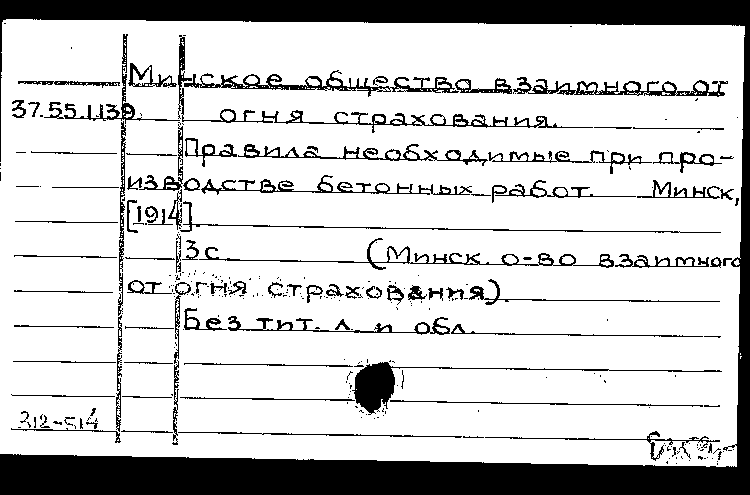 Минское общество взаимного от
37.55.1.139. огня страхования.
Правила необходимые при про-
изводстве бетонных работ. Минск,
[1914].
3с. (Минск. о-во взаимного
от огня страхования).
Без тит. л. и обл.
312-514